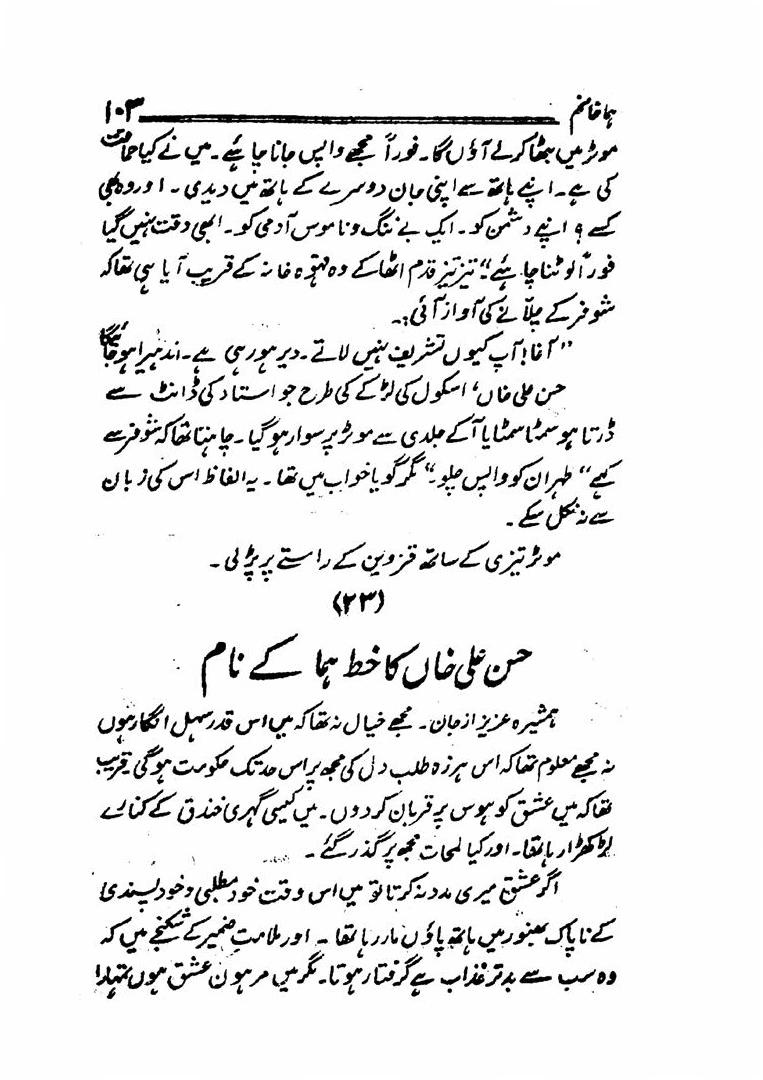 ہما خانم ۱۰۳
موٹر میں بٹھا کر لے آؤں گا۔ فوراً مجھے واپس جانا چاہئے۔ میں نے کیا حماقت
کی ہے۔ اپنے ہاتھ سے اپنی جان دوسرے کے ہاتھ میں دیدی۔ اور وہ بھی
کسے؟ اپنے دشمن کو۔ ایک بے ننگ و ناموس آدمی کو۔ ابھی وقت نہیں گیا
فوراً لوٹنا چاہئے" تیز تیز قدم اٹھا کے وہ قہوہ خانہ کے قریب آیا ہی تھا کہ
شوفر کے چلّانے کی آواز آئی:۔
"آغا! آپ کیوں تشریف نہیں لاتے۔ دیر ہو رہی ہے۔ اندھیرا ہو جائیگا
حسن علی خاں، اسکول کی لڑکے کی طرح جو استاد کی ڈانٹ سے
ڈرتا ہو سمٹا سمٹایا آ کے جلدی سے موٹر پر سوار ہو گیا۔ چاہتا تھا کہ شوفر سے
کہے "طہران کو واپس چلو۔" مگر گویا خواب میں تھا۔ یہ الفاظ اس کی زبان
سے نہ نکل سکے۔
موٹر تیزی کے ساتھ قزوین کے راستے پر پڑ لی۔
(۲۳)
حسن علی خاں کا خط ہما کے نام
ہمشیرہ عزیز از جان۔ مجھے خیال نہ تھا کہ میں اس قدر سہل انگار ہوں
نہ مجھے معلوم تھا کہ اس ہرزہ طلب دل کی مجھ پر اس حد تک حکومت ہو گی قریب
تھا کہ میں عشق کو ہوس پر قربان کر دوں۔ میں کیسی گہری خندق کے کنارے
لڑکھڑا رہا تھا۔ اور کیا لمحات مجھ پر گذر گئے۔
اگر عشق میری مدد نہ کرتا تو میں اس وقت خود مطلبی و خود پسندی
کے ناپاک بھنور میں ہاتھ پاؤں مار رہا تھا۔ اور ملامتِ ضمیر کے شکنجے میں کہ
وہ سب سے بدتر عذاب ہے گرفتار ہوتا۔ مگر میں مرہون عشق ہوں تمہارا